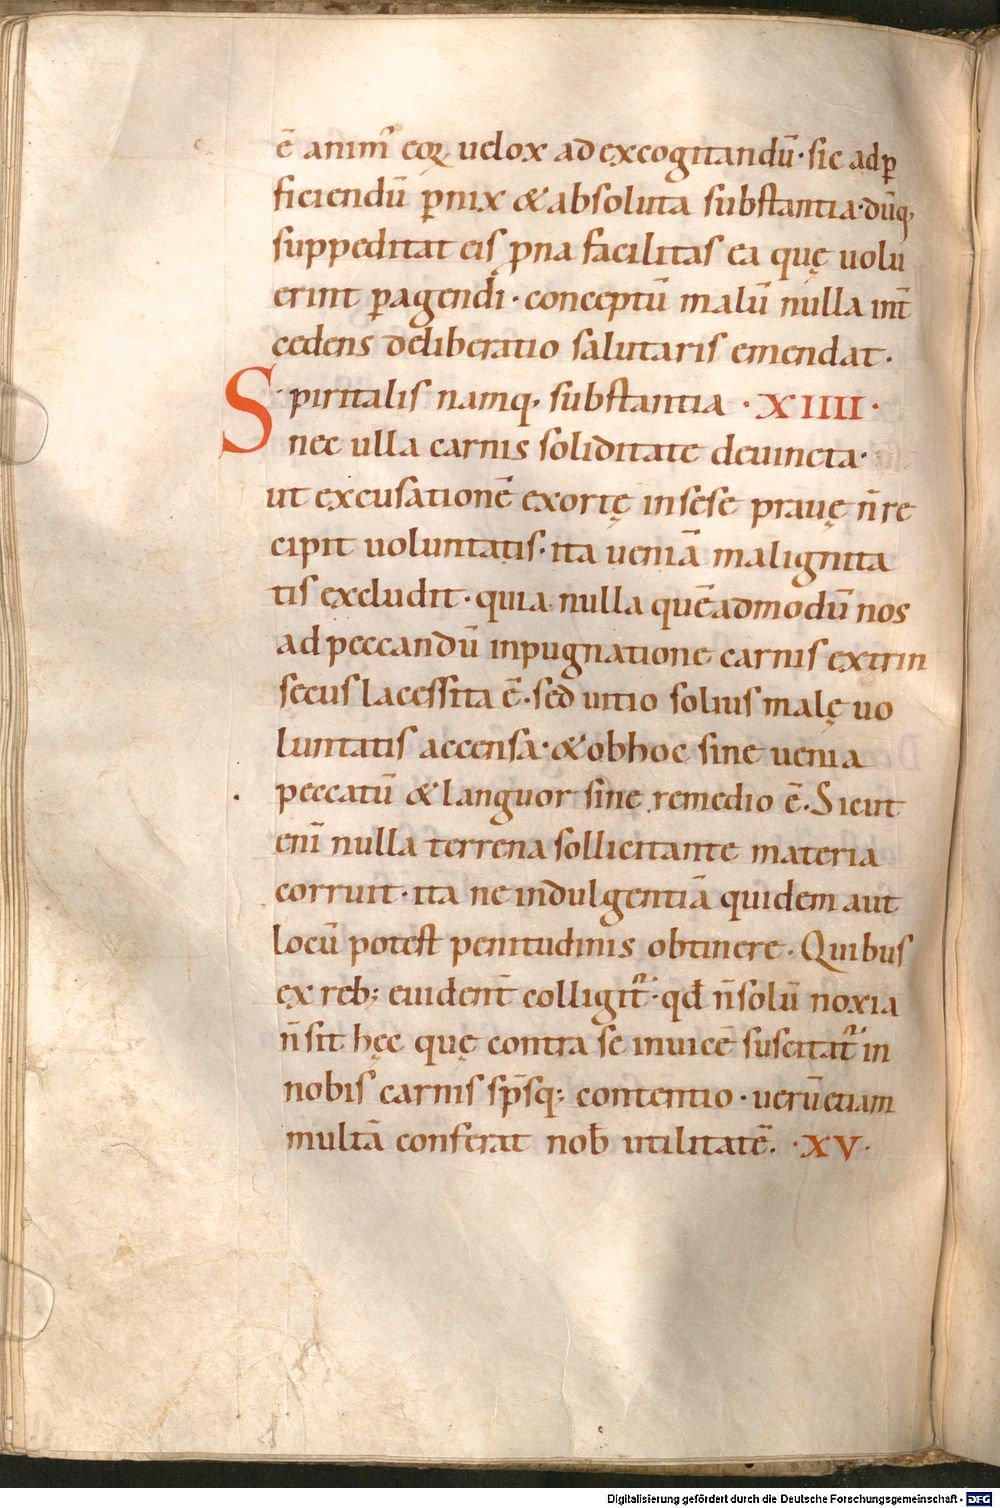 ē animꝰ eoꝝ uelox ad excogitandū· sic ad ꝑ
ficiendū ꝑnix & absoluta substantia· dūq;
suppeditat eis ꝓna facilitas ea quę uolu
erint ꝑagendi· conceptū malū nulla int̄
cedens deliberatio salutaris emendat·
Spiritalis namq; substantia ·XIIII·
nec ulla carnis soliditate deuincta·
ut excusationē exortę in sese prauę n̄ re
cipit uoluntatis· ita ueniā malignita
tis excludit· quia nulla quēadmodū nos
ad peccandū inpugnatione carnis extrin
secus lacessita ē· sed uitio solius malę uo
luntatis accensa· & ob hoc sine uenia
peccatū & languor sine remedio ē. Sicut
eni nulla terrena sollicitante materia
corruit· ita ne indulgentiā quidem aut
locū potest penitudinis obtinere· Quibus
ex reb; euident̄ colligit᷑· qđ n̄ solū noxia
n̄ sit hęc quę contra se inuicē suscitat᷑ in
nobis carnis sp̄sq; contentio· uerū etiam
multā conferat nob̄ utilitatē. ·XV·
Digitalisierung gefördert durch die Deutsche Forschungsgemeinschaft - DFG